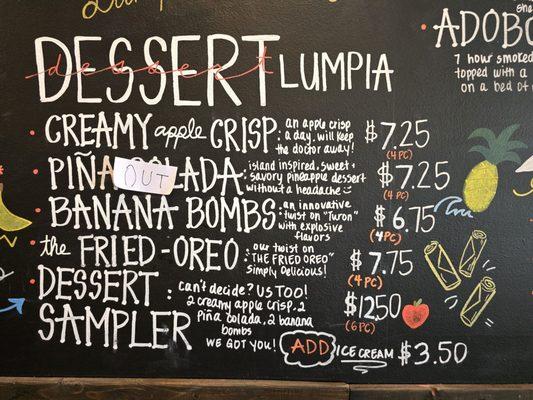 she
ADOBO
7 hour smoked
topped with a
on a bed of
DESSERT LUMPIA
dessert
CREAMY apple CRISP: an apple crisp
a day, will keep
the doctor away!
$7.25
(4 PC)
PIÑA COLADA: island inspired, sweet +
savory pineapple dessert
without a headache
OUT
$7.25
(4 PC)
BANANA BOMBS: an innovative
twist on "Turon"
with explosive
flavors
$6.75
(4 PC)
the FRIED-OREO: our twist on
"THE FRIED OREO"
simply delicious!
$7.75
(4 PC)
DESSERT
SAMPLER: can't decide? US TOO!
2 creamy apple crisp, 2
piña colada, 2 banana
bombs
WE GOT YOU!
$12.50
(6 PC)
ADD ICE CREAM $3.50